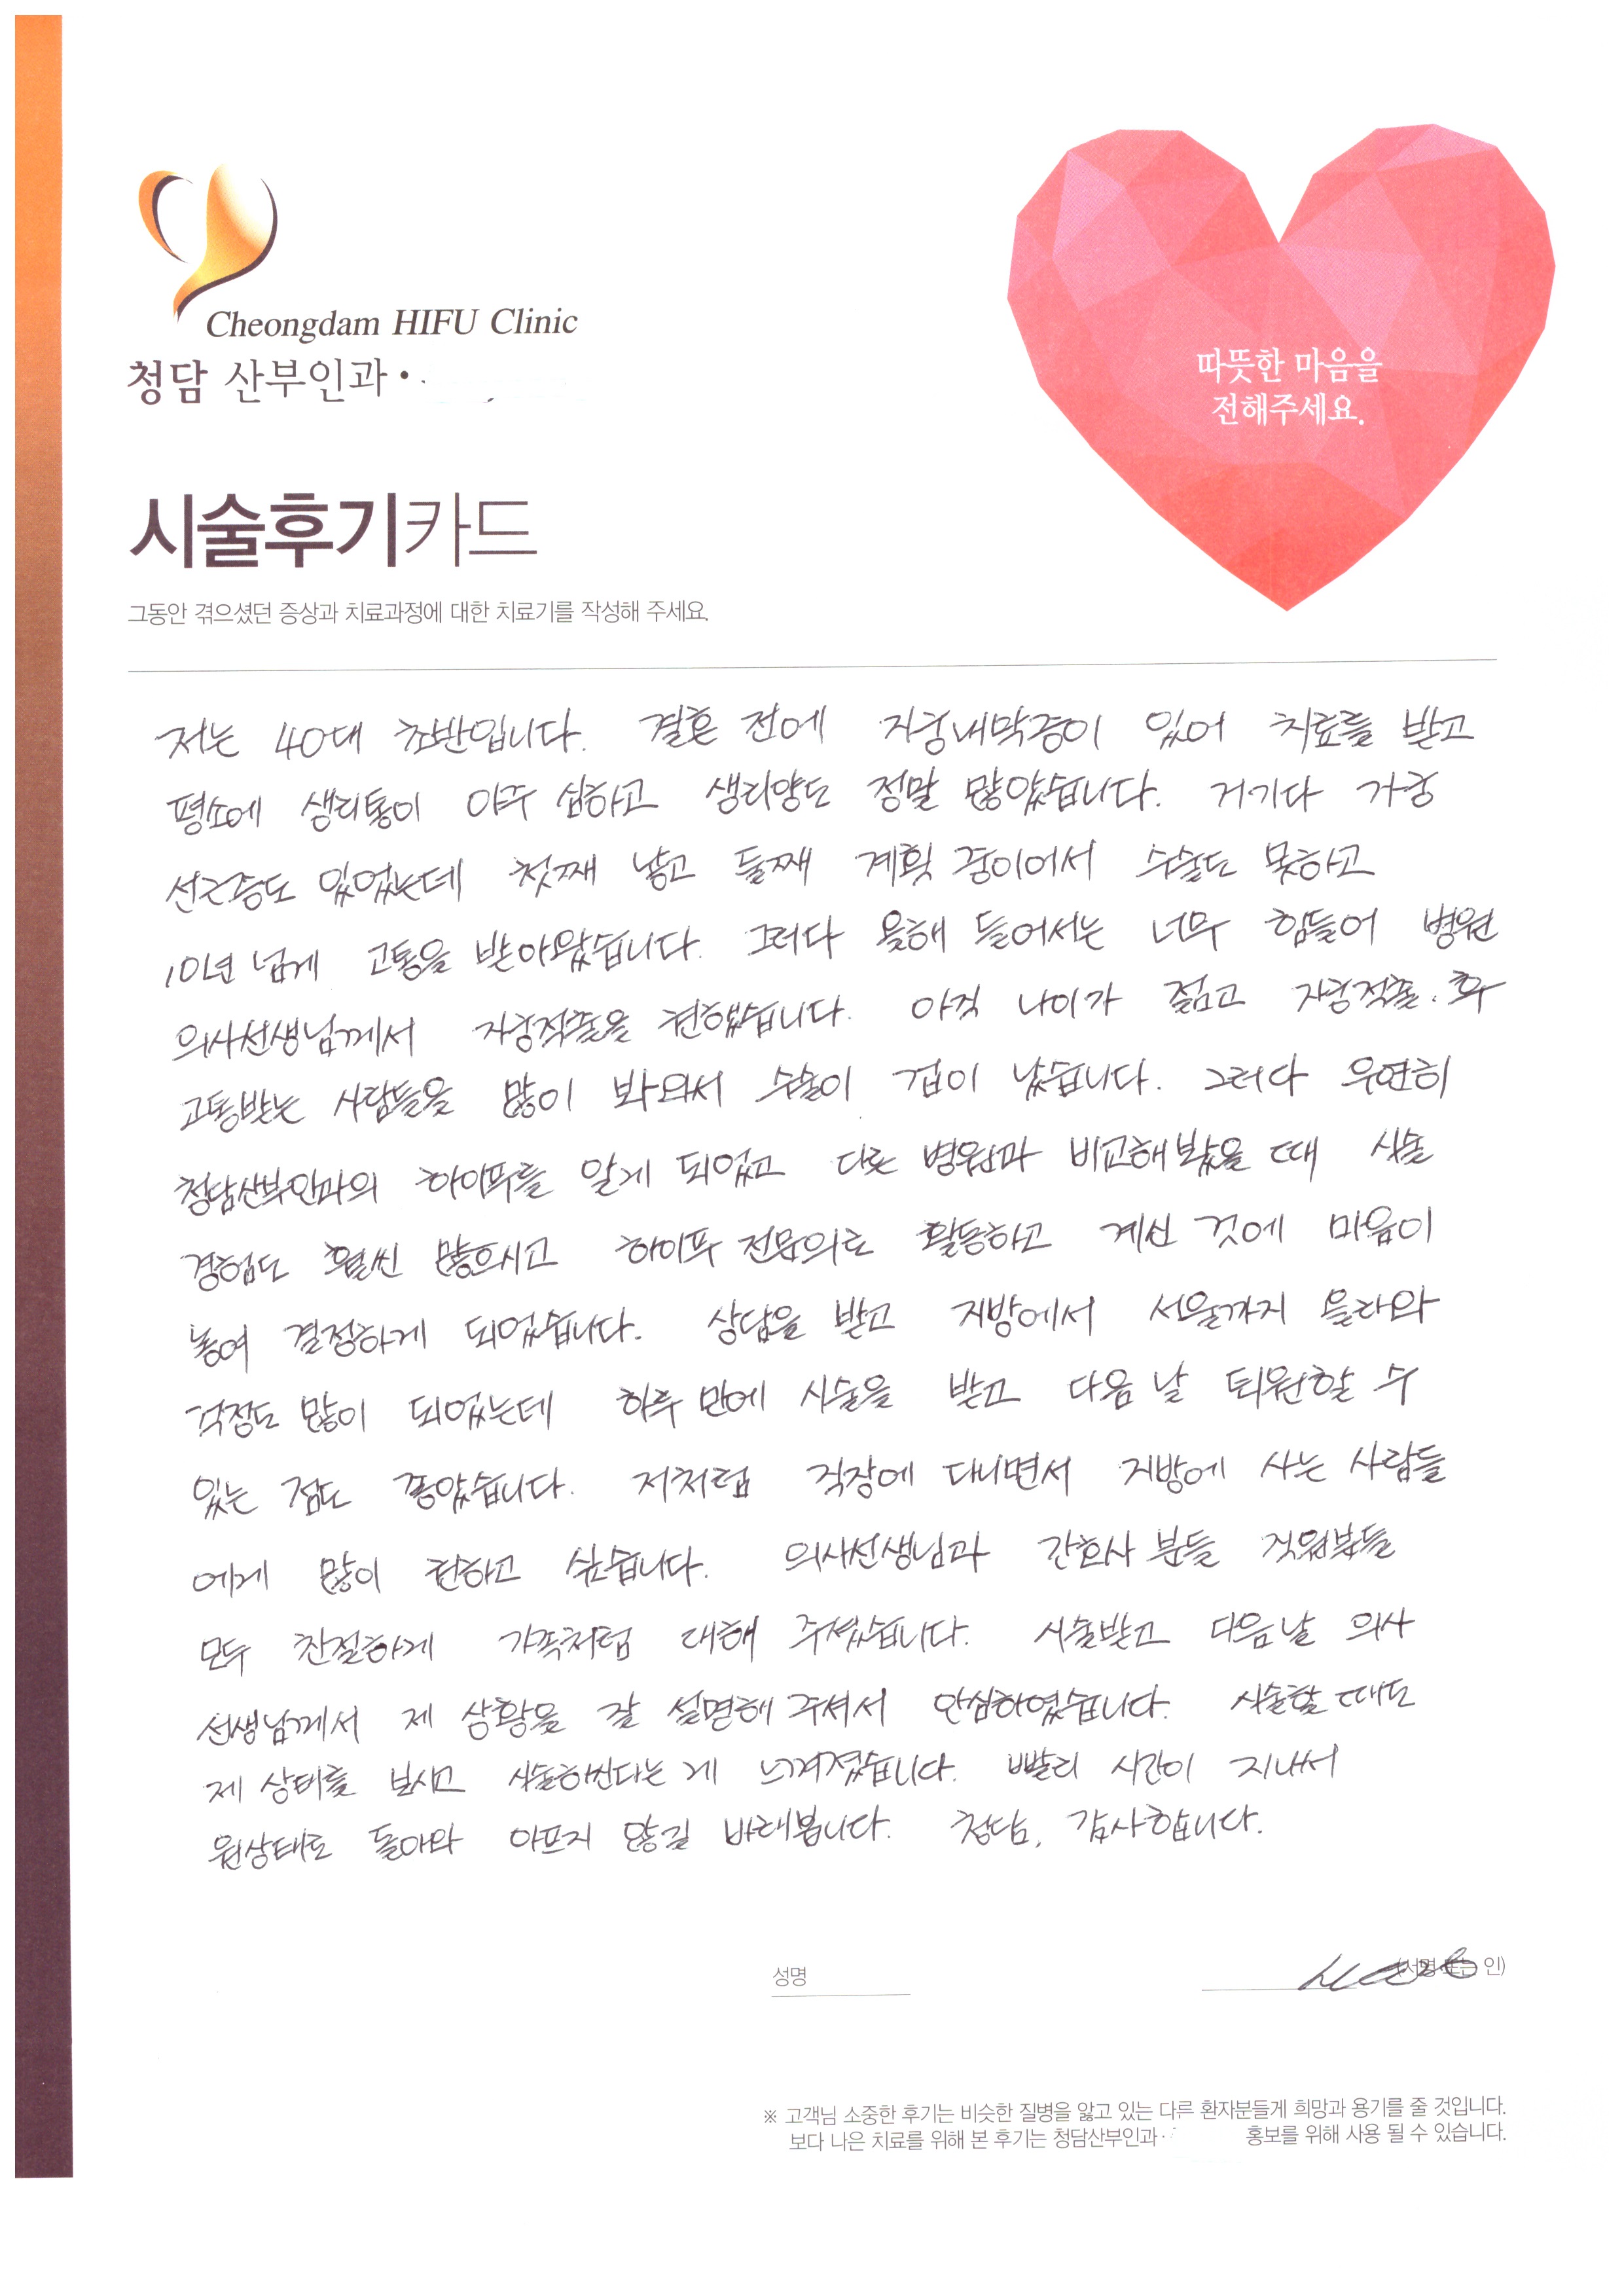 Cheongdam HIFU Clinic
청담 산부인과·
따뜻한 마음을
전해주세요.
시술후기카드
그동안 겪으셨던 증상과 치료과정에 대한 치료기를 작성해 주세요.
저는 40대 초반입니다. 결혼 전에 자궁내막증이 있어 치료를 받고
평소에 생리통이 아주 심하고 생리양도 정말 많았습니다. 거기다 자궁
선근증도 있었는데 첫째 낳고 둘째 계획 중이어서 수술도 못하고
10년 넘게 고통을 받아왔습니다. 그러다 올해 들어서는 너무 힘들어 병원
의사선생님께서 자궁적출을 권했습니다. 아직 나이가 젊고 자궁적출. 후
고통받는 사람들을 많이 봐와서 수술이 겁이 났습니다. 그러다 우연히
청담산부인과의 하이푸를 알게 되었고 다른 병원과 비교해봤을 때 시술
경험도 훨씬 많으시고 하이푸 전문의로 활동하고 계신 것에 마음이
놓여 결정하게 되었습니다. 상담을 받고 지방에서 서울까지 올라와
걱정도 많이 되었는데 하루 만에 시술을 받고 다음 날 퇴원할 수
있는 점도 좋았습니다. 저처럼 직장에 다니면서 지방에 사는 사람들
에게 많이 권하고 싶습니다. 의사선생님과 간호사 분들 직원분들
모두 친절하게 가족처럼 대해 주셨습니다. 시술받고 다음날 의사
선생님께서 제 상황을 잘 설명해 주셔서 안심하였습니다. 시술할 때도
제 상태를 보시고 시술하신다는 게 느껴졌습니다. 빨리 시간이 지나서
원상태로 돌아와 아프지 않길 바래봅니다. 청담, 감사합니다.
성명 (서명 또는 인)
※ 고객님 소중한 후기는 비슷한 질병을 앓고 있는 다른 환자분들게 희망과 용기를 줄 것입니다.
보다 나은 치료를 위해 본 후기는 청담산부인과· 홍보를 위해 사용 될 수 있습니다.